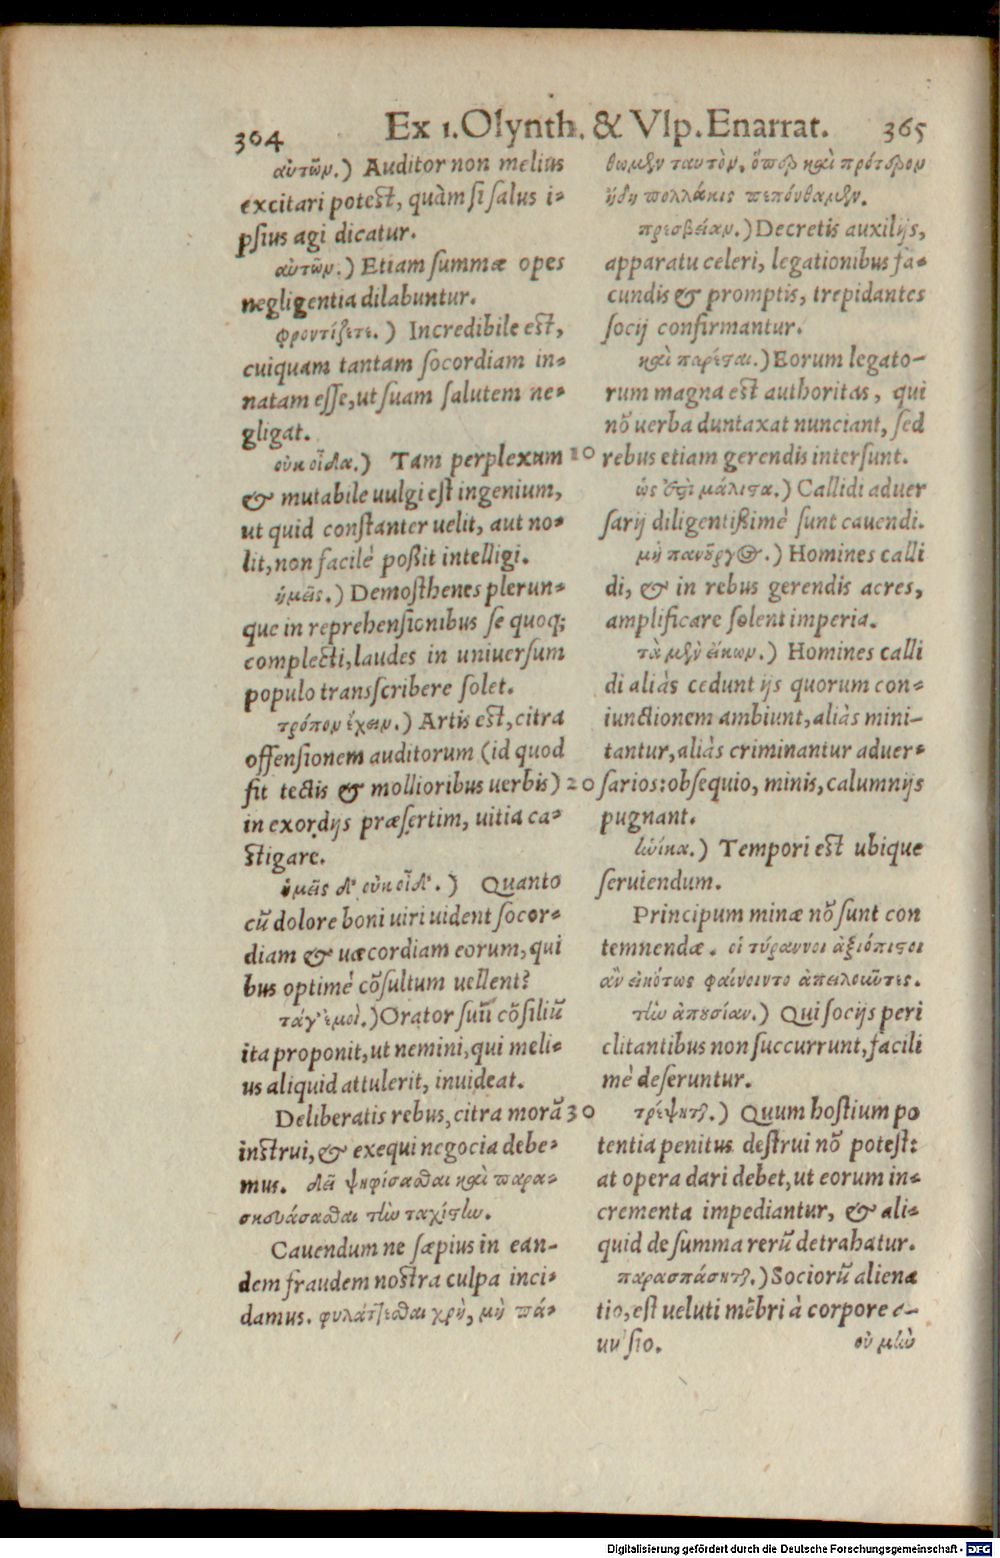 304
Ex 1. Olynth. & Vlp. Enarrat.
365
αὐτῶν.) Auditor non melius
excitari potest, quàm si salus i-
psius agi dicatur.
αὐτῶν.) Etiam summæ opes
negligentia dilabuntur.
φροντίζετε.) Incredibile est,
cuiquam tantam socordiam in-
natam esse, ut suam salutem ne-
gligat.
οὐκ οἶδα.) Tam perplexum
& mutabile uulgi est ingenium,
ut quid constanter uelit, aut no-
lit, non facilè poßit intelligi.
ἡμεῖς.) Demosthenes plerun-
que in reprehensionibus se quoq;
complecti, laudes in uniuersum
populo transcribere solet.
τρόπον ἔχειν.) Artis est, citra
offensionem auditorum (id quod
fit tectis & mollioribus uerbis)
in exordijs præsertim, uitia ca-
stigare.
ὑμεῖς δ' οὐκ οἶδ'.) Quanto
cū dolore boni uiri uident socor-
diam & uæcordiam eorum, qui
bus optimè cōsultum uellent?
τάγ' ἐμοὶ.) Orator suū cōsiliū
ita proponit, ut nemini, qui meli-
us aliquid attulerit, inuideat.
Deliberatis rebus, citra morā
instrui, & exequi negocia debe-
mus. δεῖ ψηφίσασθαι καὶ παρα-
σκευάσασθαι τὴν ταχίστην.
Cauendum ne sæpius in ean-
dem fraudem nostra culpa inci-
damus. φυλάττεσθαι χρὴ, μὴ πά-
10
20
30
θωμεν ταυτὸν, ὅπερ καὶ πρότερον
ἤδη πολλάκις πεπόνθαμεν.
πρεσβείαν.) Decretis auxilijs,
apparatu celeri, legationibus fa-
cundis & promptis, trepidantes
socij confirmantur.
καὶ παρέσται.) Eorum legato-
rum magna est authoritas, qui
nō uerba duntaxat nunciant, sed
rebus etiam gerendis intersunt.
ὡς ἔστι μάλιστα.) Callidi aduer
sarij diligentißimè sunt cauendi.
μὴ πανοῦργος.) Homines calli
di, & in rebus gerendis acres,
amplificare solent imperia.
τὰ μὲν εἴκων.) Homines calli
di aliàs cedunt ijs quorum con-
iunctionem ambiunt, aliàs mini-
tantur, aliàs criminantur aduer-
sarios: obsequio, minis, calumnijs
pugnant.
ἡνίκα.) Tempori est ubique
seruiendum.
Principum minæ nō sunt con
temnendæ. οἱ τύραννοι ἀξιόπιστοι
ἂν εἰκότως φαίνοιντο ἀπειλοῦντες.
τὴν ἀπουσίαν.) Qui socijs peri
clitantibus non succurrunt, facili
mè deseruntur.
τρέψηται.) Quum hostium po
tentia penitus destrui nō potest:
at opera dari debet, ut eorum in-
crementa impediantur, & ali-
quid de summa rerū detrahatur.
παρασπάσηται.) Sociorū aliena
tio, est ueluti mēbri à corpore a-
uulsio.
οὐ μὴν
Digitalisierung gefördert durch die Deutsche Forschungsgemeinschaft - DFG